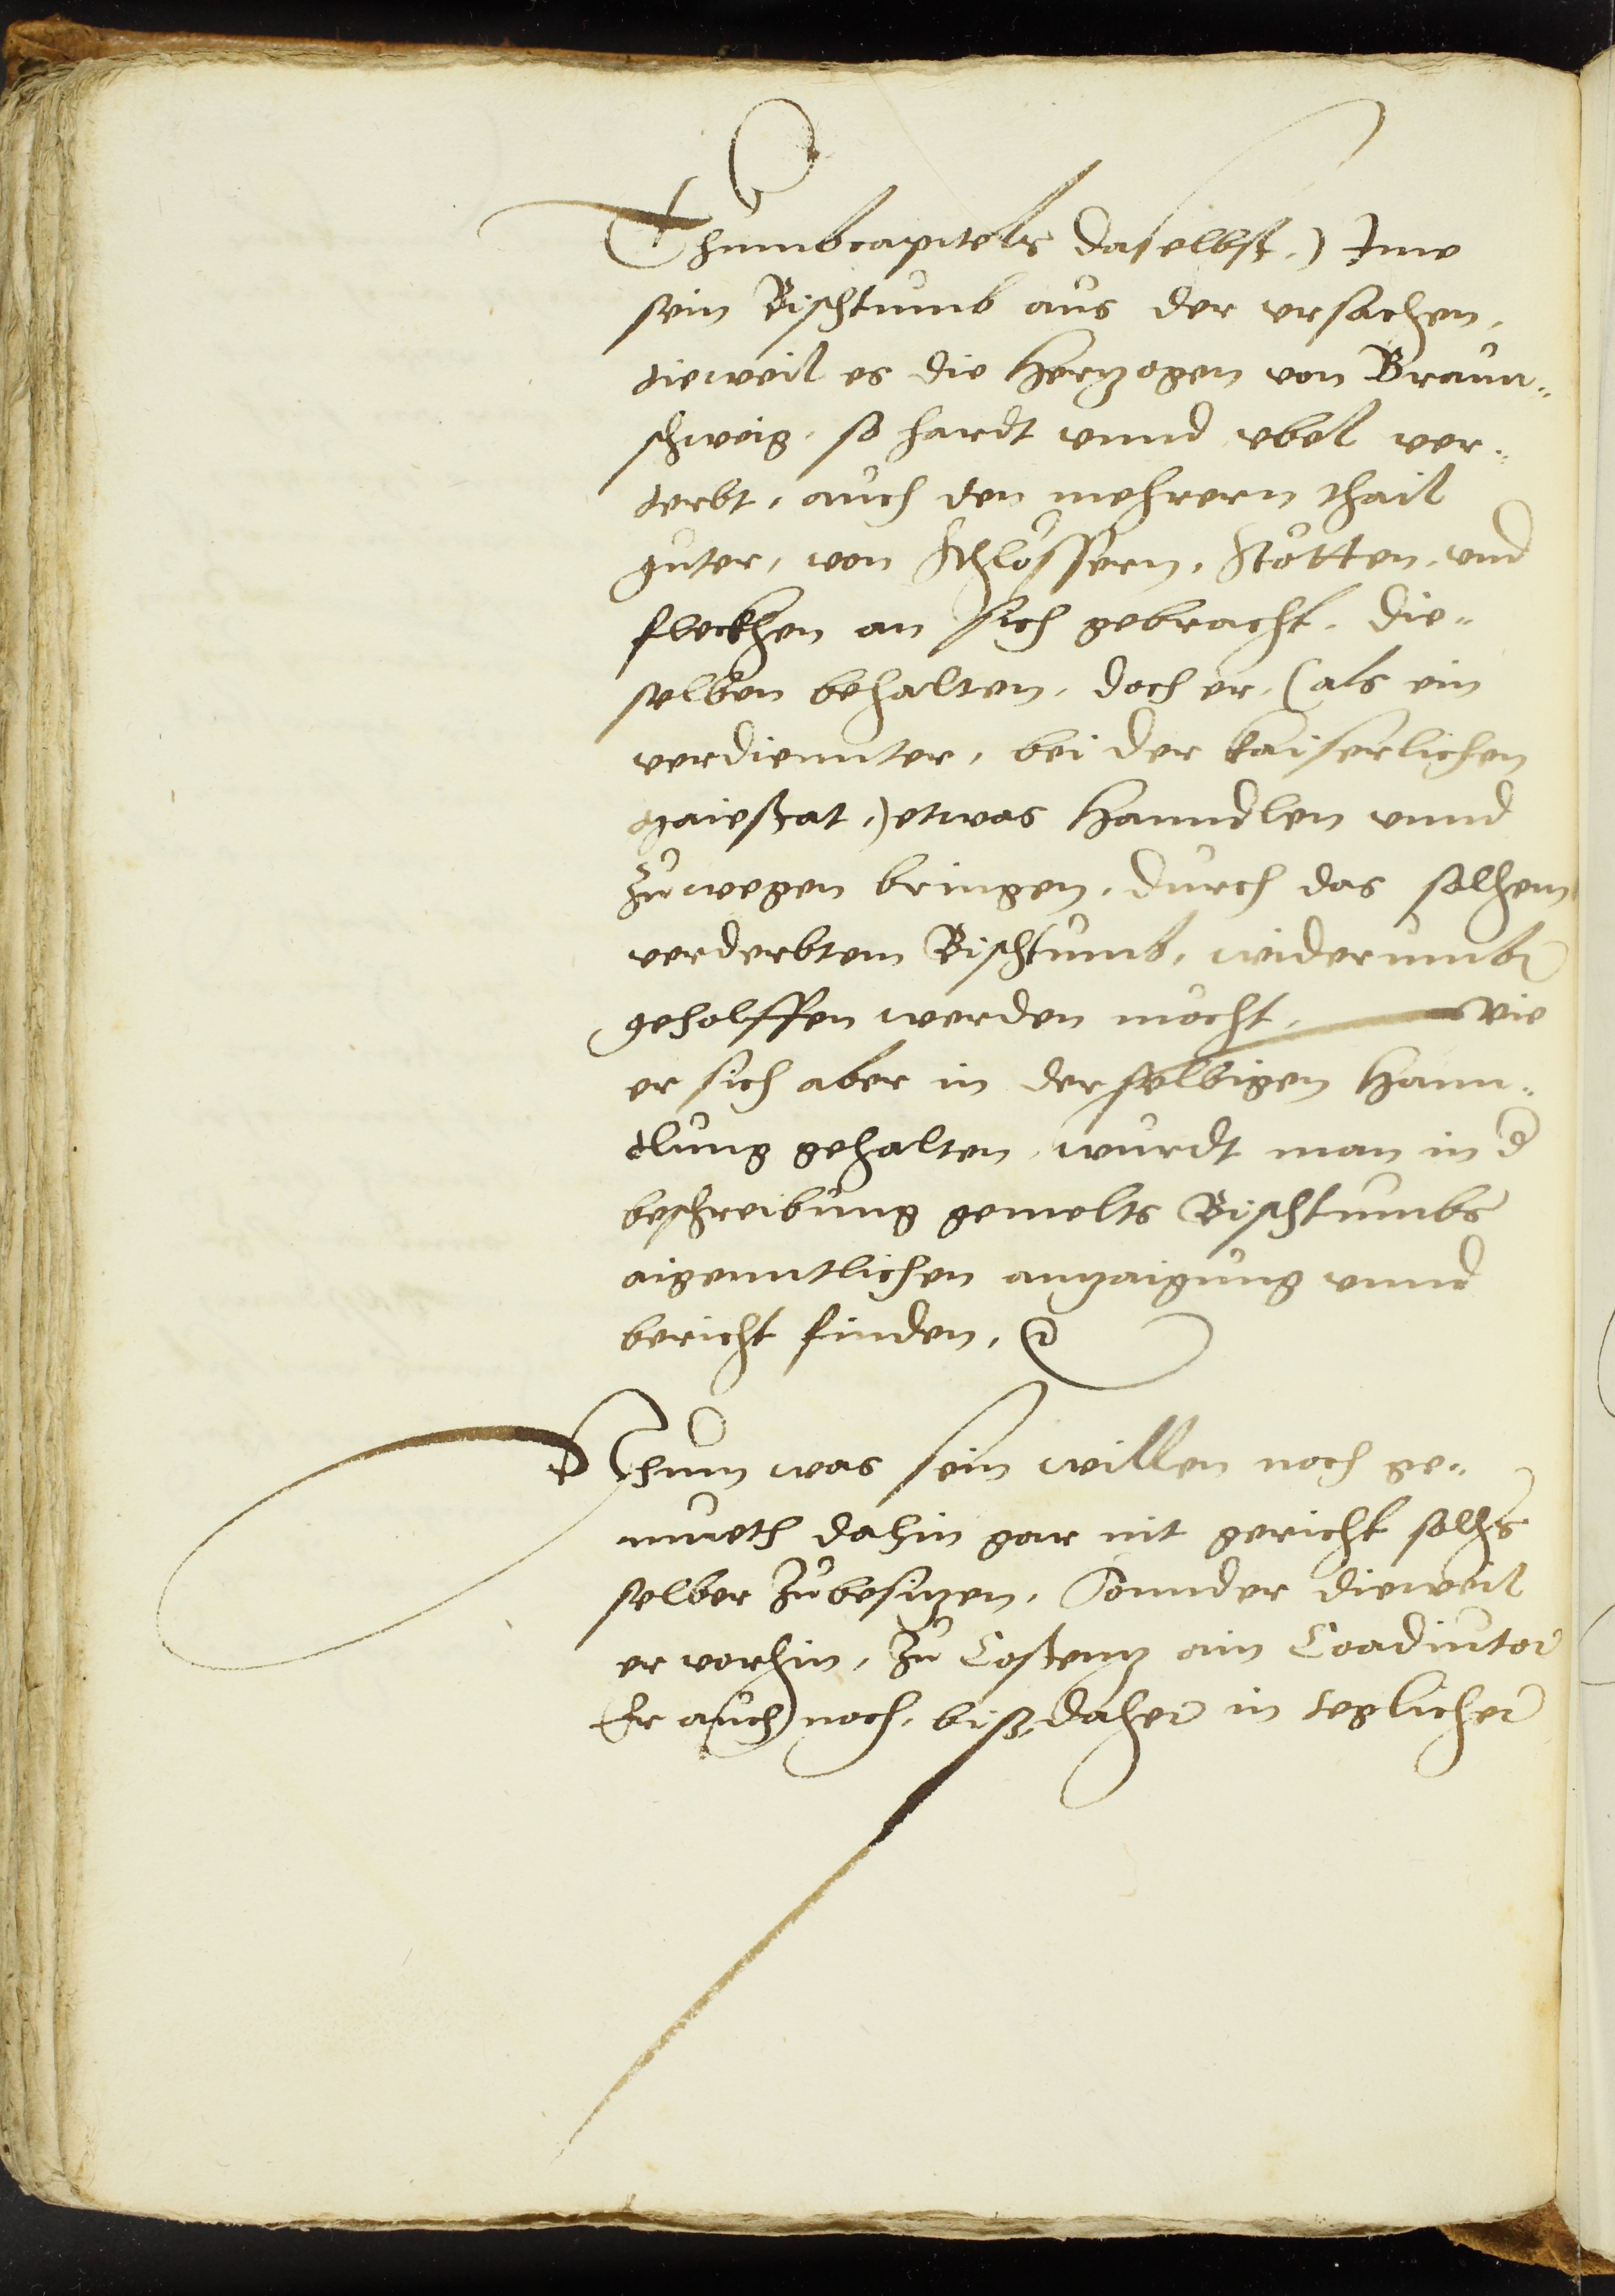 Thumbcapitels daselbst,) Ime
sein Bischtumb aus der ursachen,
dieweil es die Hertzogen von Braun„
schweig, so hardt unnd ubel ver„
derbt, auch den mehrern thail
guter, von Schlössern, Stötten, und
fleckhen an sich gebracht, die„
selben behalten, doch er, (als ein
verdiennter, bei der kaiserlichen
Maiestat,) etwas Hanndlen unnd
zuwegen bringen, durch das solhem
verderbtem Bischtumb, widerumb
geholffen werden mocht, Wie
er sich aber in derselbigen Hann„
dlung gehalten, wurdt man in d
beschreibung gemelts Bischtumbs
aigenntlichen anzaigung unnd
bericht finden,
Nhun was sein willen noch ge„
mueth dahin gar nit gericht solhs
selber zubesitzen, Sonnder dieweil
er vorhin, zu Costentz ain Coadiutor
Er auch noch, biß daher in teglicher